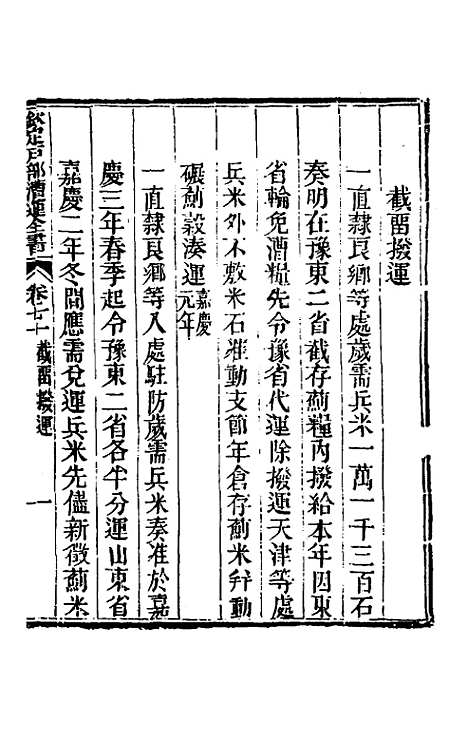 截畱撥運
一直𨽻良鄉等處歲需兵米一萬一千三百石
奏明在豫東二省截存薊糧內撥給本年因東
省輪免漕糧先令豫省代運除撥運天津等處
兵米外不敷米石准動支節年倉存薊米幷動
碾薊穀湊運嘉慶元年
一直隸良鄉等八處駐防歲需兵米奏准於嘉
慶三年春季起令豫東二省各半分運山東省
嘉慶二年冬間應需兌運兵米先儘新徵薊米
欽定戶部漕運全書 卷七十 截畱撥運 一